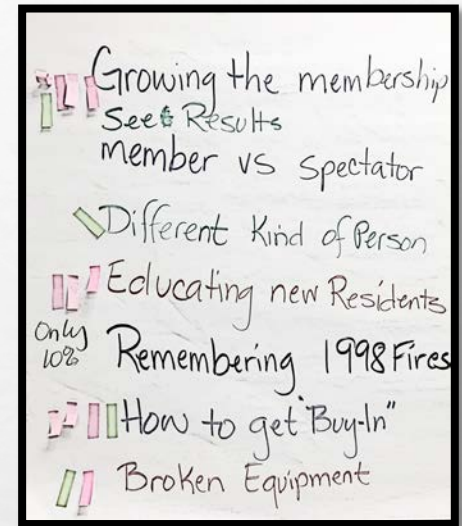 Growing the membership
See Results
member vs spectator
Different Kind of Person
Educating new Residents
Only
10% Remembering 1998 Fires
How to get "Buy-In"
Broken Equipment